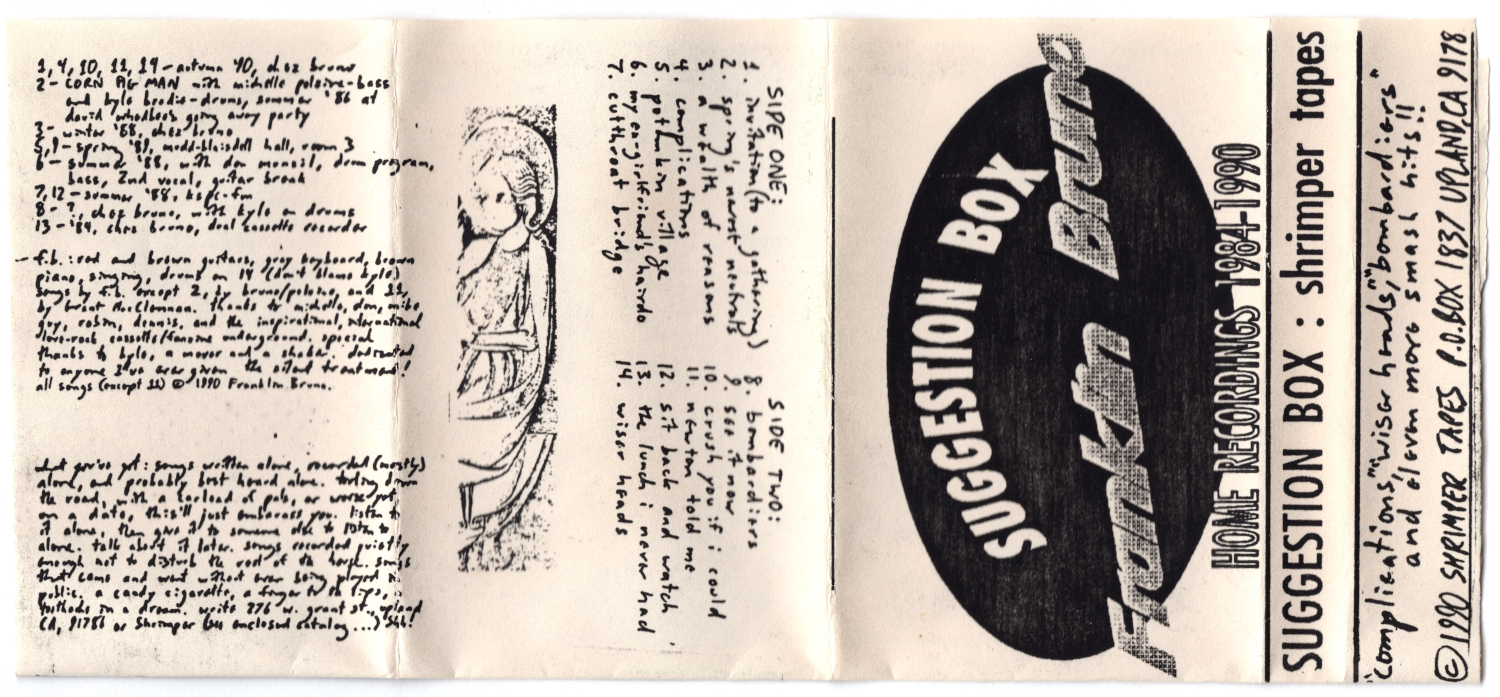 1, 4, 10, 11, 14 – autumn '90, chez bruno
2 – CORN PIG MAN with michelle poloine – bass
and kyle brodie – drums, summer '86 at
david going away party
3 – winter '88, chez bruno
5, 9 – spring '89, mudd-blaisdell hall, room 3
6 – summer '88, with don program,
bass, 2nd vocal, guitar break
7, 12 – summer '88, kspc-fm
8 – ?, chez bruno, with kyle on drums
13 – '84, chez bruno, dual cassette recorder
– f.b.: red and brown guitars, gray keyboard, brown
piano, singing, drums on 14 (don't blame kyle)
songs by f.b. except 2, by bruno/poloine, and 11,
by Grant McClennan. thanks to michelle, don, mike,
guy, robin, dennis, and the inspirational, international
love-rock cassette/fanzine underground. special
thanks to kyle, a mover and a shaker. dedicated
to anyone I've ever given the silent treatment!
all songs (except 11) © 1990 Franklin Bruno.
what you've got: songs written alone, recorded (mostly)
alone, and probably best heard alone. tooling down
the road, with a carload of pals, or worse yet,
on a date, this'll just embarass you. listen to
it alone, then give it to someone else to listen to
alone. talk about it later. songs recorded quietly
enough not to disturb the rest of the house. songs
that come and went without ever being played in
public. a candy cigarette, a finger to the lips,
in a dream. write 276 w. grant st., upland
CA, 91786 or Shrimper (see enclosed catalog...) Shh!
SIDE ONE:
1. invitation (to a gathering)
2. spring's nearest neutrals
3. a wealth of reasons
4. complications
5. potemkin village
6. my ex-girlfriend's hairdo
7. cutthroat bridge
SIDE TWO:
8. bombardiers
9. see it now
10. crush you if i could
11. newton told me
12. sit back and watch
13. the lunch i never had
14. wiser heads
SUGGESTION BOX
Franklin Bruno
HOME RECORDINGS 1984-1990
SUGGESTION BOX : shrimper tapes
"complications," "wiser heads," "bombardiers"
and eleven more smash hits!!
© 1990 SHRIMPER TAPES P.O. BOX 1837 UPLAND, CA 9178